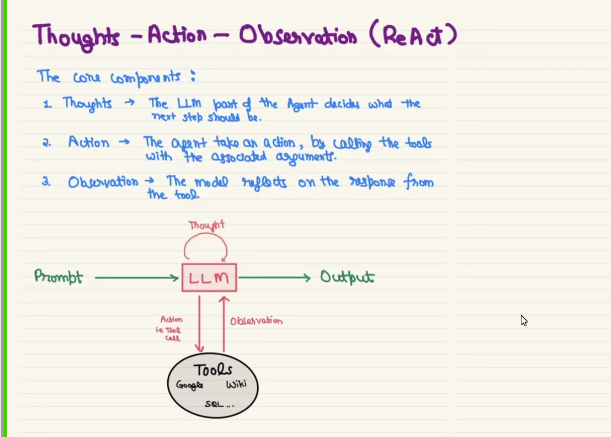 Thoughts - Action - Observation (ReAct)
The core components :
1. Thoughts → The LLM part of the Agent decides what the
next step should be.
2. Action → The agent take an action, by calling the tools
with the associated arguments.
3. Observation → The model reflects on the response from
the tool.
Thought
Prompt
LLM
Output
Action
ie Tool
call
Observation
Tools
Google Wiki
SQL ...